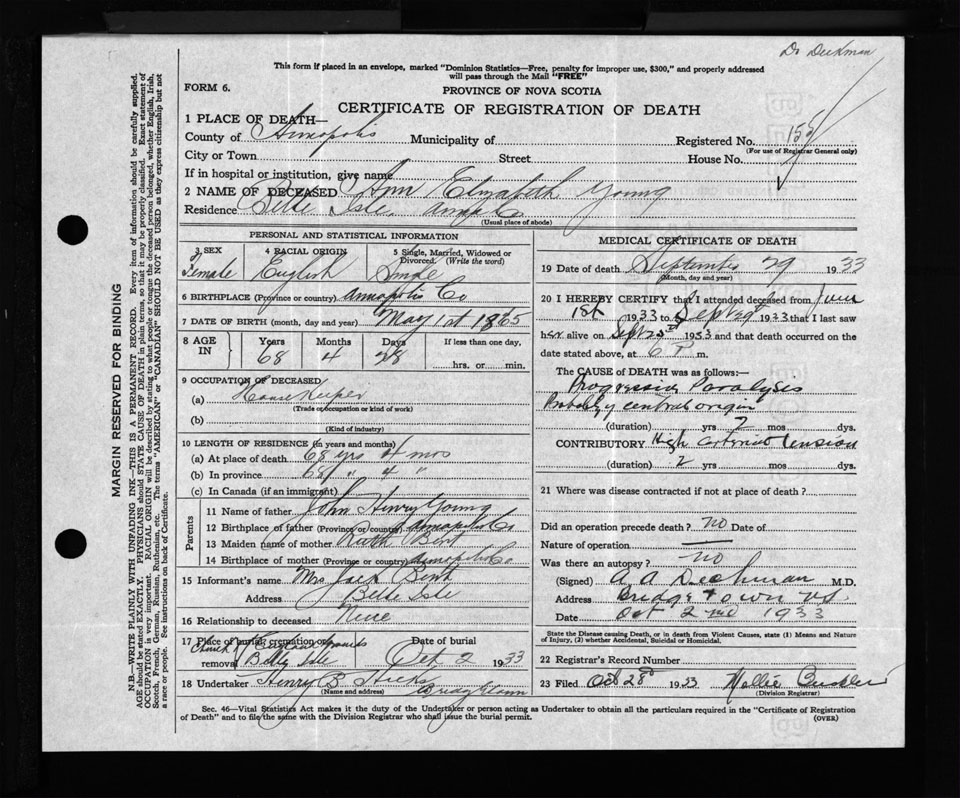 Dr Deckman
This form if placed in an envelope, marked "Dominion Statistics—Free, penalty for improper use, $300," and properly addressed
will pass through the Mail "FREE"
FORM 6.
PROVINCE OF NOVA SCOTIA
CERTIFICATE OF REGISTRATION OF DEATH
1 PLACE OF DEATH—
County of Annapolis Municipality of Registered No. 155
(For use of Registrar General only)
City or Town Street House No.
If in hospital or institution, give name
2 NAME OF DECEASED Ann Elizabeth Young
Residence Belle Isle Annap Co
(Usual place of abode)
PERSONAL AND STATISTICAL INFORMATION
3 SEX 4 RACIAL ORIGIN 5 Single, Married, Widowed or
Divorced. (Write the word)
Female English Single
6 BIRTHPLACE (Province or country) Annapolis Co
7 DATE OF BIRTH (month, day and year) May 1st 1865
8 AGE IN Years Months Days If less than one day
68 4 28 hrs. or min.
9 OCCUPATION OF DECEASED
(a) House Keeper
(Trade or occupation or kind of work)
(b)
(Kind of industry)
10 LENGTH OF RESIDENCE (in years and months)
(a) At place of death 68 yrs 4 mos
(b) In province 68 " 4 "
(c) In Canada (if an immigrant)
Parents
11 Name of father John Henry Young
12 Birthplace of father (Province or country) Annapolis Co
13 Maiden name of mother Ruth Bent
14 Birthplace of mother (Province or country) Annapolis Co
15 Informant's name Mrs Bent
Address Belle Isle
16 Relationship to deceased Niece
17 Place of burial, cremation or Date of burial
removal Belle Isle Oct 2 1933
18 Undertaker Henry B Hicks
(Name and address) Bridgetown
MEDICAL CERTIFICATE OF DEATH
19 Date of death September 29 1933
(Month, day and year)
20 I HEREBY CERTIFY that I attended deceased from June
1st 1933 to Sept 29th 1933 that I last saw
her alive on Sept 1933 and that death occurred on the
date stated above, at 6 P m.
The CAUSE of DEATH was as follows:—
Progressive Paralysis
Probably central origin
(duration) yrs 2 mos dys.
CONTRIBUTORY High arterial tension
(duration) 2 yrs mos dys.
21 Where was disease contracted if not at place of death?
Did an operation precede death? no Date of
Nature of operation
Was there an autopsy? no
(Signed) A A Deckman M.D.
Address Bridgetown NS
Date Oct 2nd 1933
State the Disease causing Death, or in death from Violent Causes, state (1) Means and Nature
of Injury, (2) whether Accidental, Suicidal or Homicidal.
22 Registrar's Record Number
23 Filed Oct 28th 1933 Nellie
(Division Registrar)
Sec. 46—Vital Statistics Act makes it the duty of the Undertaker or person acting as Undertaker to obtain all the particulars required in the "Certificate of Registration
of Death" and to file the same with the Division Registrar who shall issue the burial permit.
(OVER)
MARGIN RESERVED FOR BINDING
N.B.—WRITE PLAINLY WITH UNFADING INK—THIS IS A PERMANENT RECORD. Every item of information should be carefully supplied.
AGE should be stated EXACTLY. PHYSICIANS should STATE CAUSE OF DEATH in plain terms, so that it may be properly classified. Exact statement of
OCCUPATION is very important. RACIAL ORIGIN will be described by stating to what people or tongue the deceased person belonged, whether English, Irish,
Scotch, French, German, Russian, Ruthenian, etc. The terms "AMERICAN" or "CANADIAN" SHOULD NOT BE USED as they express citizenship but not
a race or people. See instructions on back of Certificate.